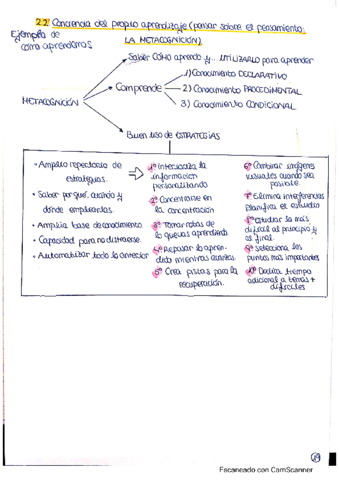 2.2 Conciencia del propio aprendizaje (pensar sobre el pensamiento:
LA METACOGNICIÓN)
Ejemplo de
cómo aprendemos
Saber CÓMO aprendo y... UTILIZARLO para aprender
METACOGNICIÓN
Comprende
1) Conocimiento DECLARATIVO
2) Conocimiento PROCEDIMENTAL
3) Conocimiento CONDICIONAL
Buen uso de ESTRATEGIAS
• Amplio repertorio de
estrategias.
• Saber por qué, cuándo y
dónde emplearlas.
• Amplia base de conocimiento
• Capacidad para no distraerse.
• Automatizar todo lo anterior
1º Interioriza la
información
personalizando
2º Concentrarse en
la concentración
3º Tomar notas de
lo que vas aprendiendo
4º Repasar lo apren-
dido mientras
5º Crea pistas para la
recuperación.
6º Combinar imágenes
visuales cuando sea
posible.
7º Elimina interferencias
Planifica el estudio
8º Estudiar lo más
difícil al principio y
al final.
9º Selecciona los
puntos más importantes
10º Dedica tiempo
adicional a temas +
difíciles
Escaneado con CamScanner